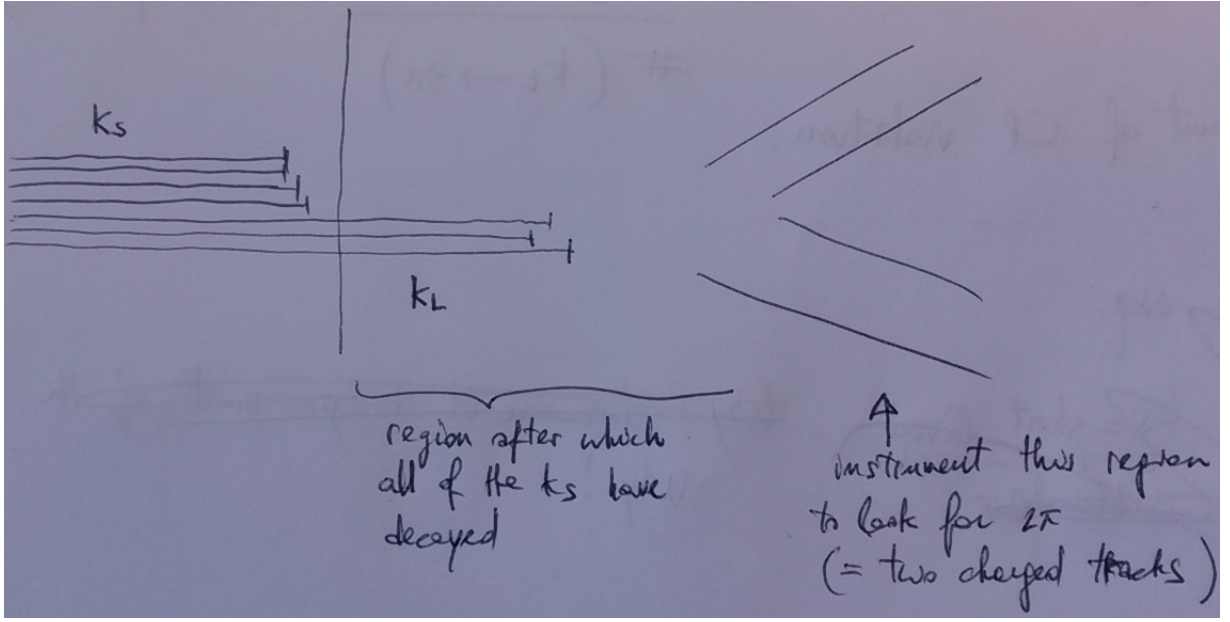 Ks
KL
region after which
all of the Ks have
decayed
instrument this region
to look for 2π
(= two charged tracks)
# (KL→3π)
of CP violation